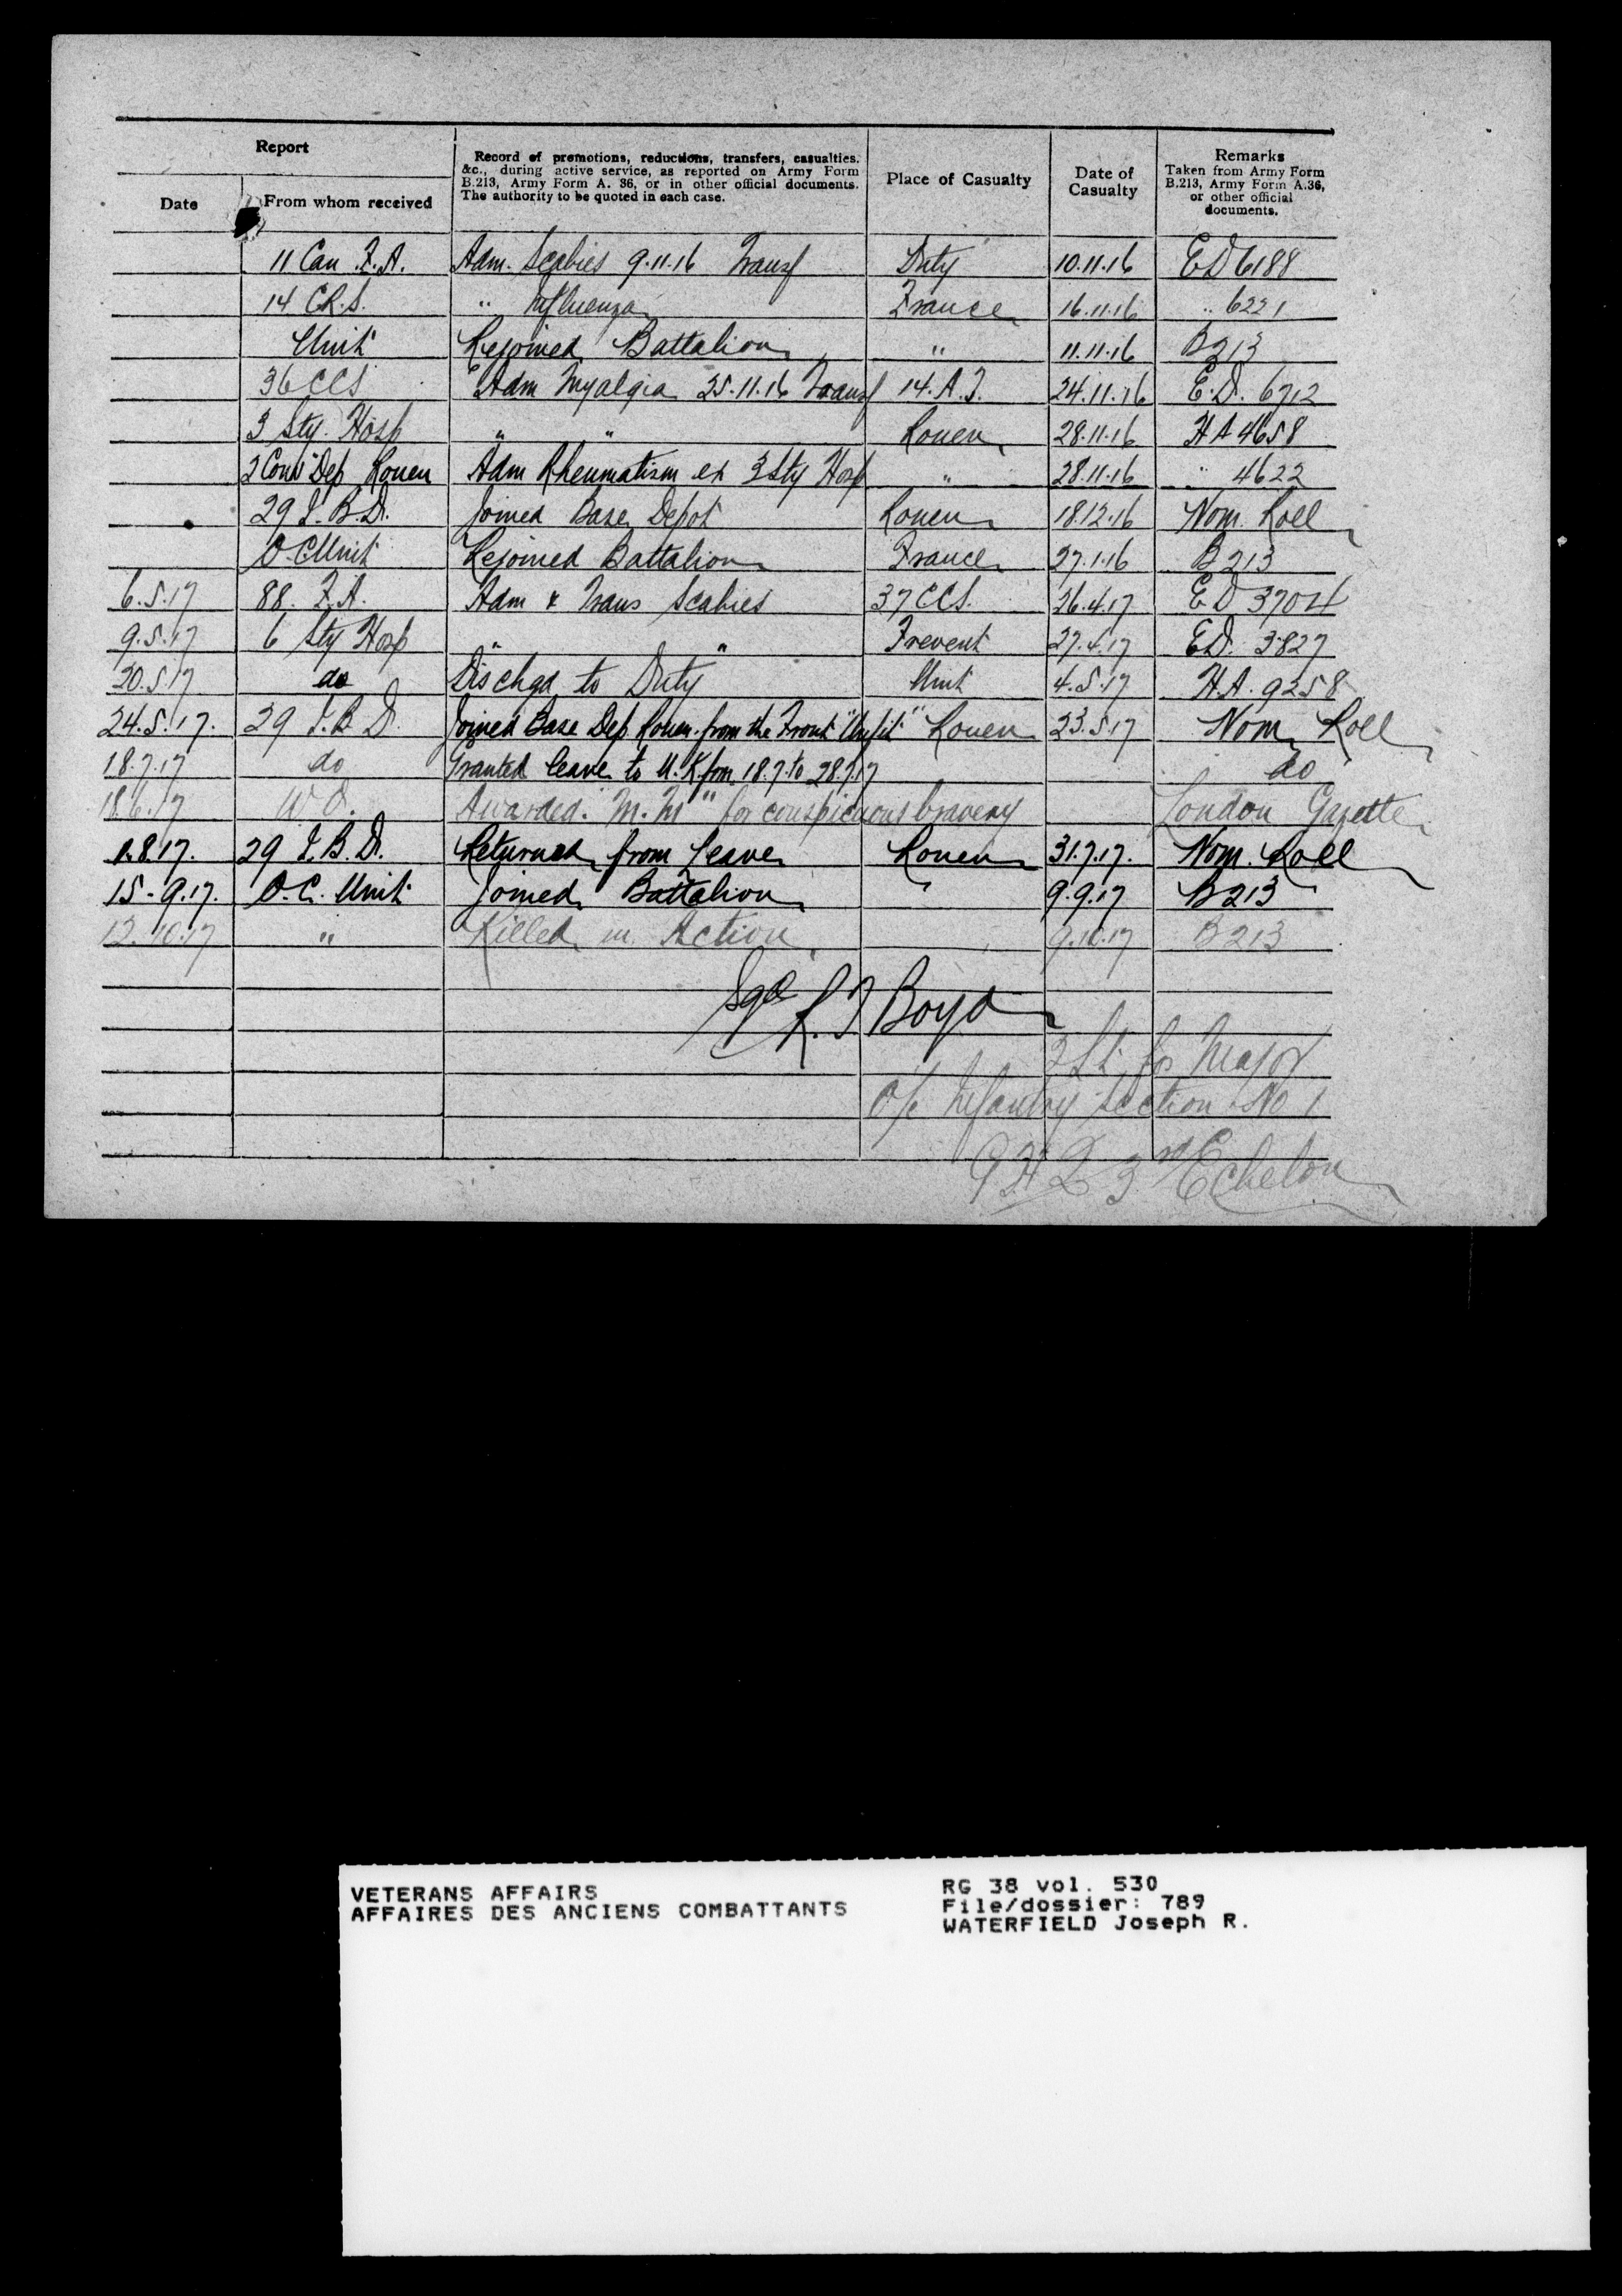 Report
Record of promotions, reductions, transfers, casualties, &c., during active service, as reported on Army Form B.213, Army Form A. 36, or in other official documents. The authority to be quoted in each case.
Place of Casualty
Date of Casualty
Remarks Taken from Army Form B.213, Army Form A.36, or other official documents.
Date
From whom received
11 Can F.A. Adm. Scabies 9.11.16 Transf Duty 10.11.16 ED 6188
14 C.R.S. " Influenza France 16.11.16 " 6221
Unit Rejoined Battalion " 11.11.16 B213
36 CCS Adm Myalgia 25.11.16 Transf 14.A.T. 24.11.16 E.D. 6712
3 Sty. Hosp " " Rouen 28.11.16 HA 4658
2 Conv Dep Rouen Adm Rheumatism ex 3 Sty Hosp " 28.11.16 " 4622
29 I.B.D. Joined Base Depot Rouen 18.12.16 Nom. Roll
O.C Unit Rejoined Battalion France 27.1.16 B213
6.5.17 88. F.A. Adm & Trans Scabies 37 CCS. 26.4.17 ED 3704
9.5.17 6 Sty Hosp " " Frevent 27.4.17 ED. 3827
20.5.17 do Dischgd to Duty Unit 4.5.17 H.A. 9258
24.5.17. 29 I.B.D. Joined Base Dep Rouen from the Front "Unfit" Rouen 23.5.17 Nom. Roll
18.7.17 do Granted leave to U.K. fm 18.7 to 28.7.17 do
18.6.17 W.O. Awarded "M.M" for conspicuous bravery London Gazette
1.8.17. 29 I.B.D. Returned from leave Rouen 31.7.17. Nom. Roll
15-9.17. O.C. Unit Joined Battalion " 9.9.17 B213
13.10.17 " Killed in Action 9.10.17 B213
Sgd
Boyd
2 Lt. for Major
O/c Infantry Section No 1
G.H.Q 3rd Echelon
VETERANS AFFAIRS
AFFAIRES DES ANCIENS COMBATTANTS
RG 38 vol. 530
File/dossier: 789
WATERFIELD Joseph R.